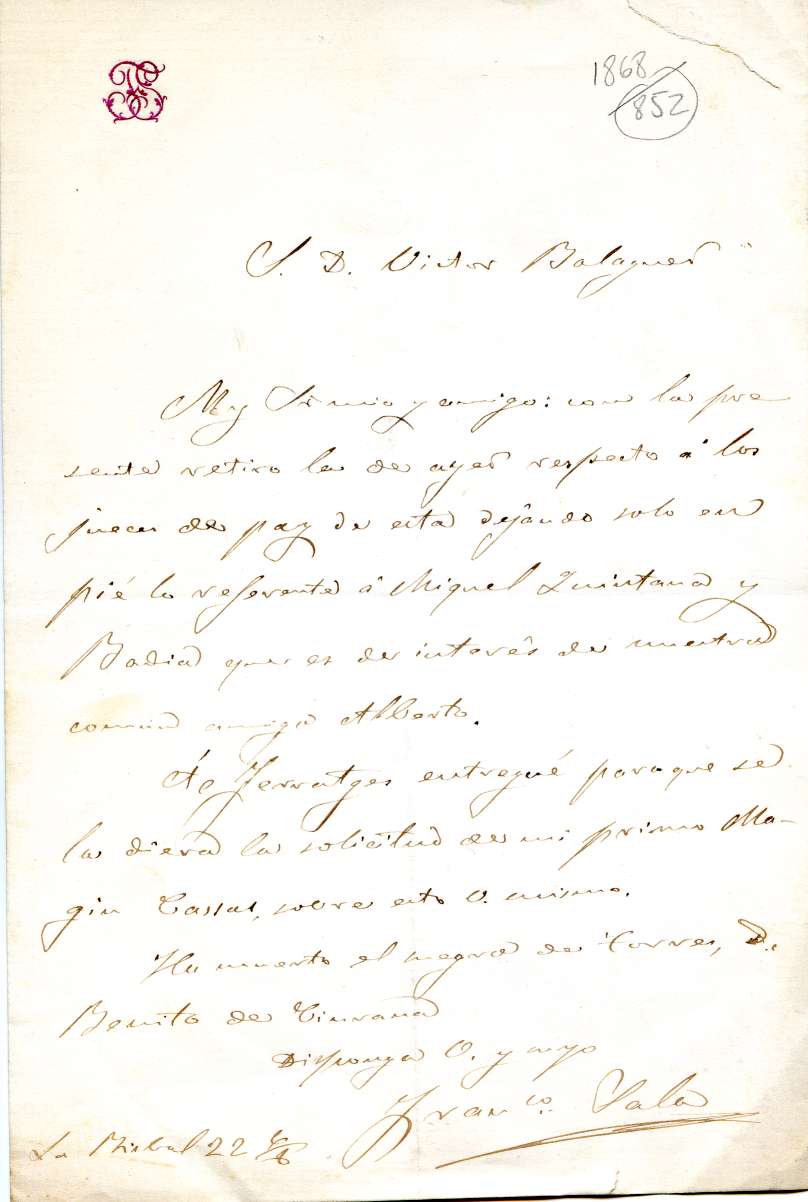 1868
852
S. D. Victor Balaguer
Muy Sr mio y amigo: con la pre-
sente retiro la de ayer respecto á los
jueces de paz de esta dejando solo en
pié lo referente á Miquel Quintana y
Badia que es de interés de nuestro
comun amigo Alberto.
Á Ferratges entregué para que se
la diera la solicitud de mi primo Ma-
gin Cassas, sobre esto V. mismo.
Ha muerto el suegro de Torres, D.
Benito de
Disponga V. y suyo
Franco. Sala
La Bisbal 22